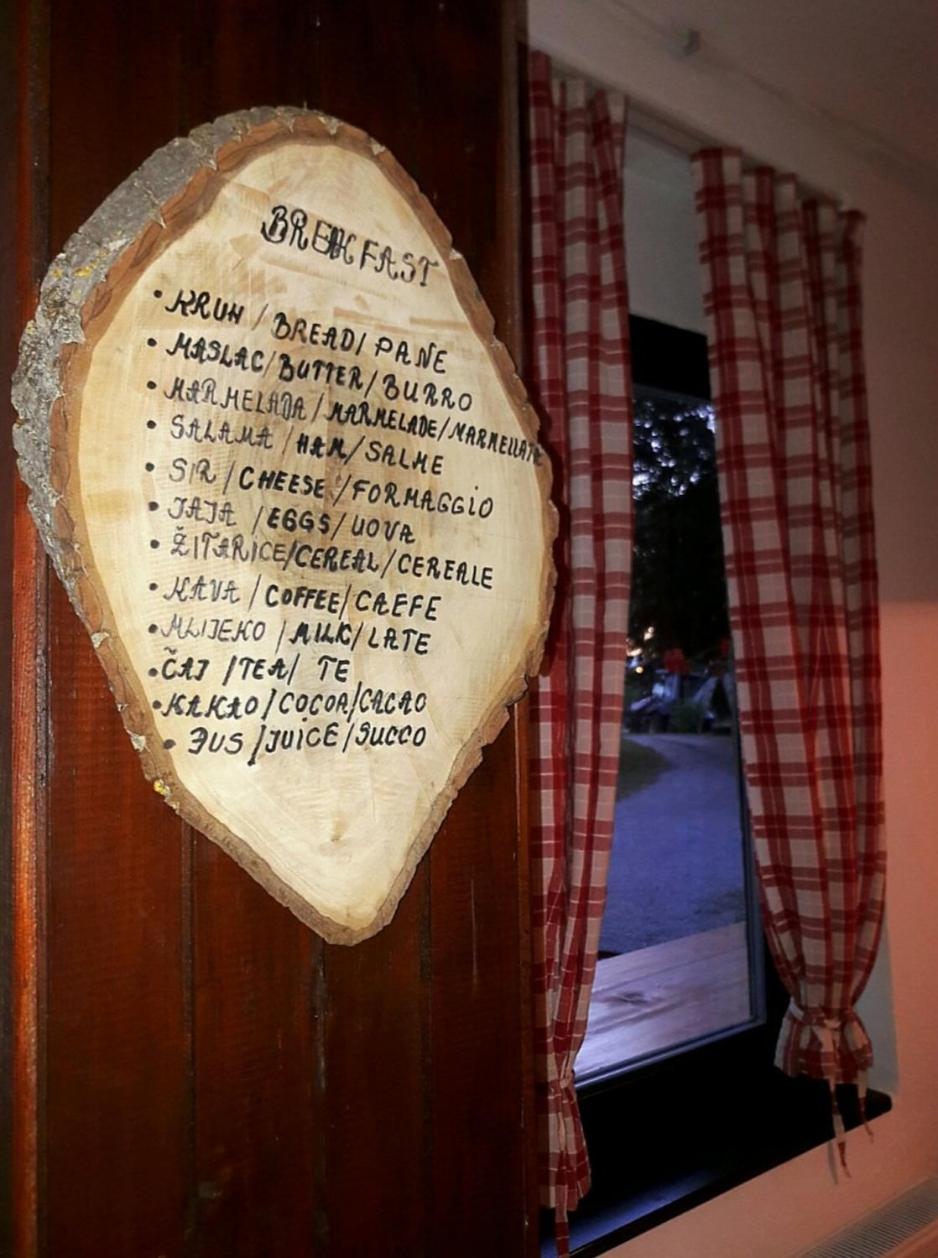 BREAKFAST
• KRUH / BREAD / PANE
• MASLAC / BUTTER / BURRO
• MARMELADA / MARMELADE / MARMELLATA
• SALAMA / HAM / SALME
• SIR / CHEESE / FORMAGGIO
• JAJA / EGGS / UOVA
• ŽITARICE / CEREAL / CEREALE
• KAVA / COFFEE / CAEFE
• MLIJEKO / MILK / LATE
• ČAJ / TEA / TE
• KAKAO / COCOA / CACAO
• JUS / JUICE / SUCCO